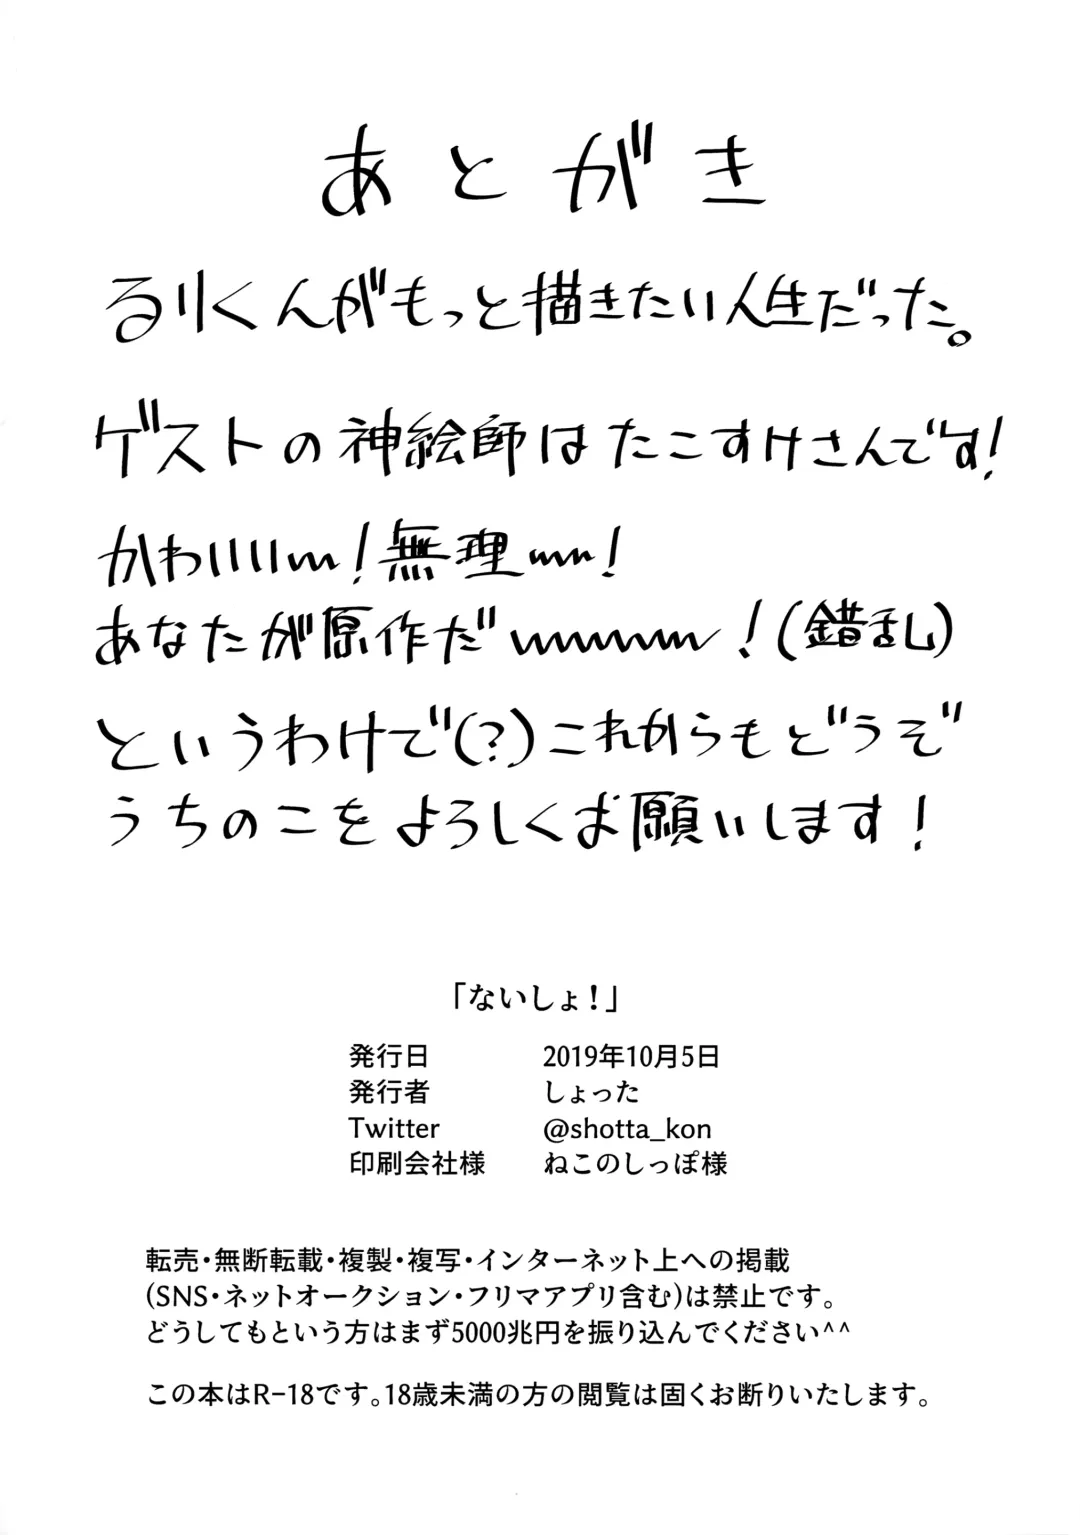 あとがき
るりくんがもっと描きたい人生だった。
ゲストの神絵師はたこすけさんです!
かわいいい!無理!
あなたが原作だ!(錯乱)
というわけで(?)これからもどうぞ
うちのこをよろしくお願いします!
「ないしょ!」
発行日 2019年10月5日
発行者 しょった
Twitter @shotta_kon
印刷会社様 ねこのしっぽ様
転売・無断転載・複製・複写・インターネット上への掲載
(SNS・ネットオークション・フリマアプリ含む)は禁止です。
どうしてもという方はまず5000兆円を振り込んでください^^
この本はR-18です。18歳未満の方の閲覧は固くお断りいたします。